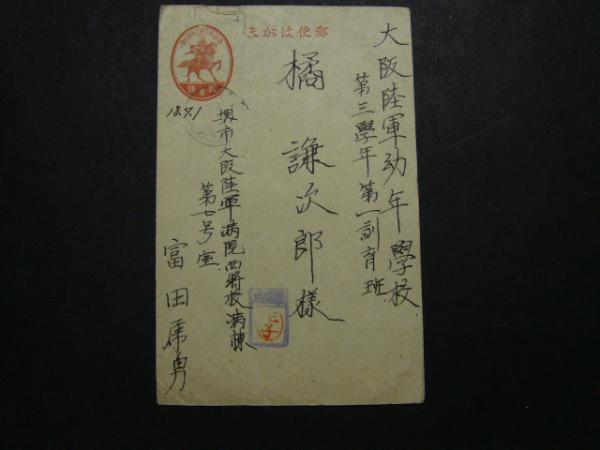 郵便はがき
大阪陸軍幼年學校
第三學年第一訓育班
橘謙次郎様
堺市大阪陸軍病院西将校病棟
第七号室
富田乕勇
18.9.1